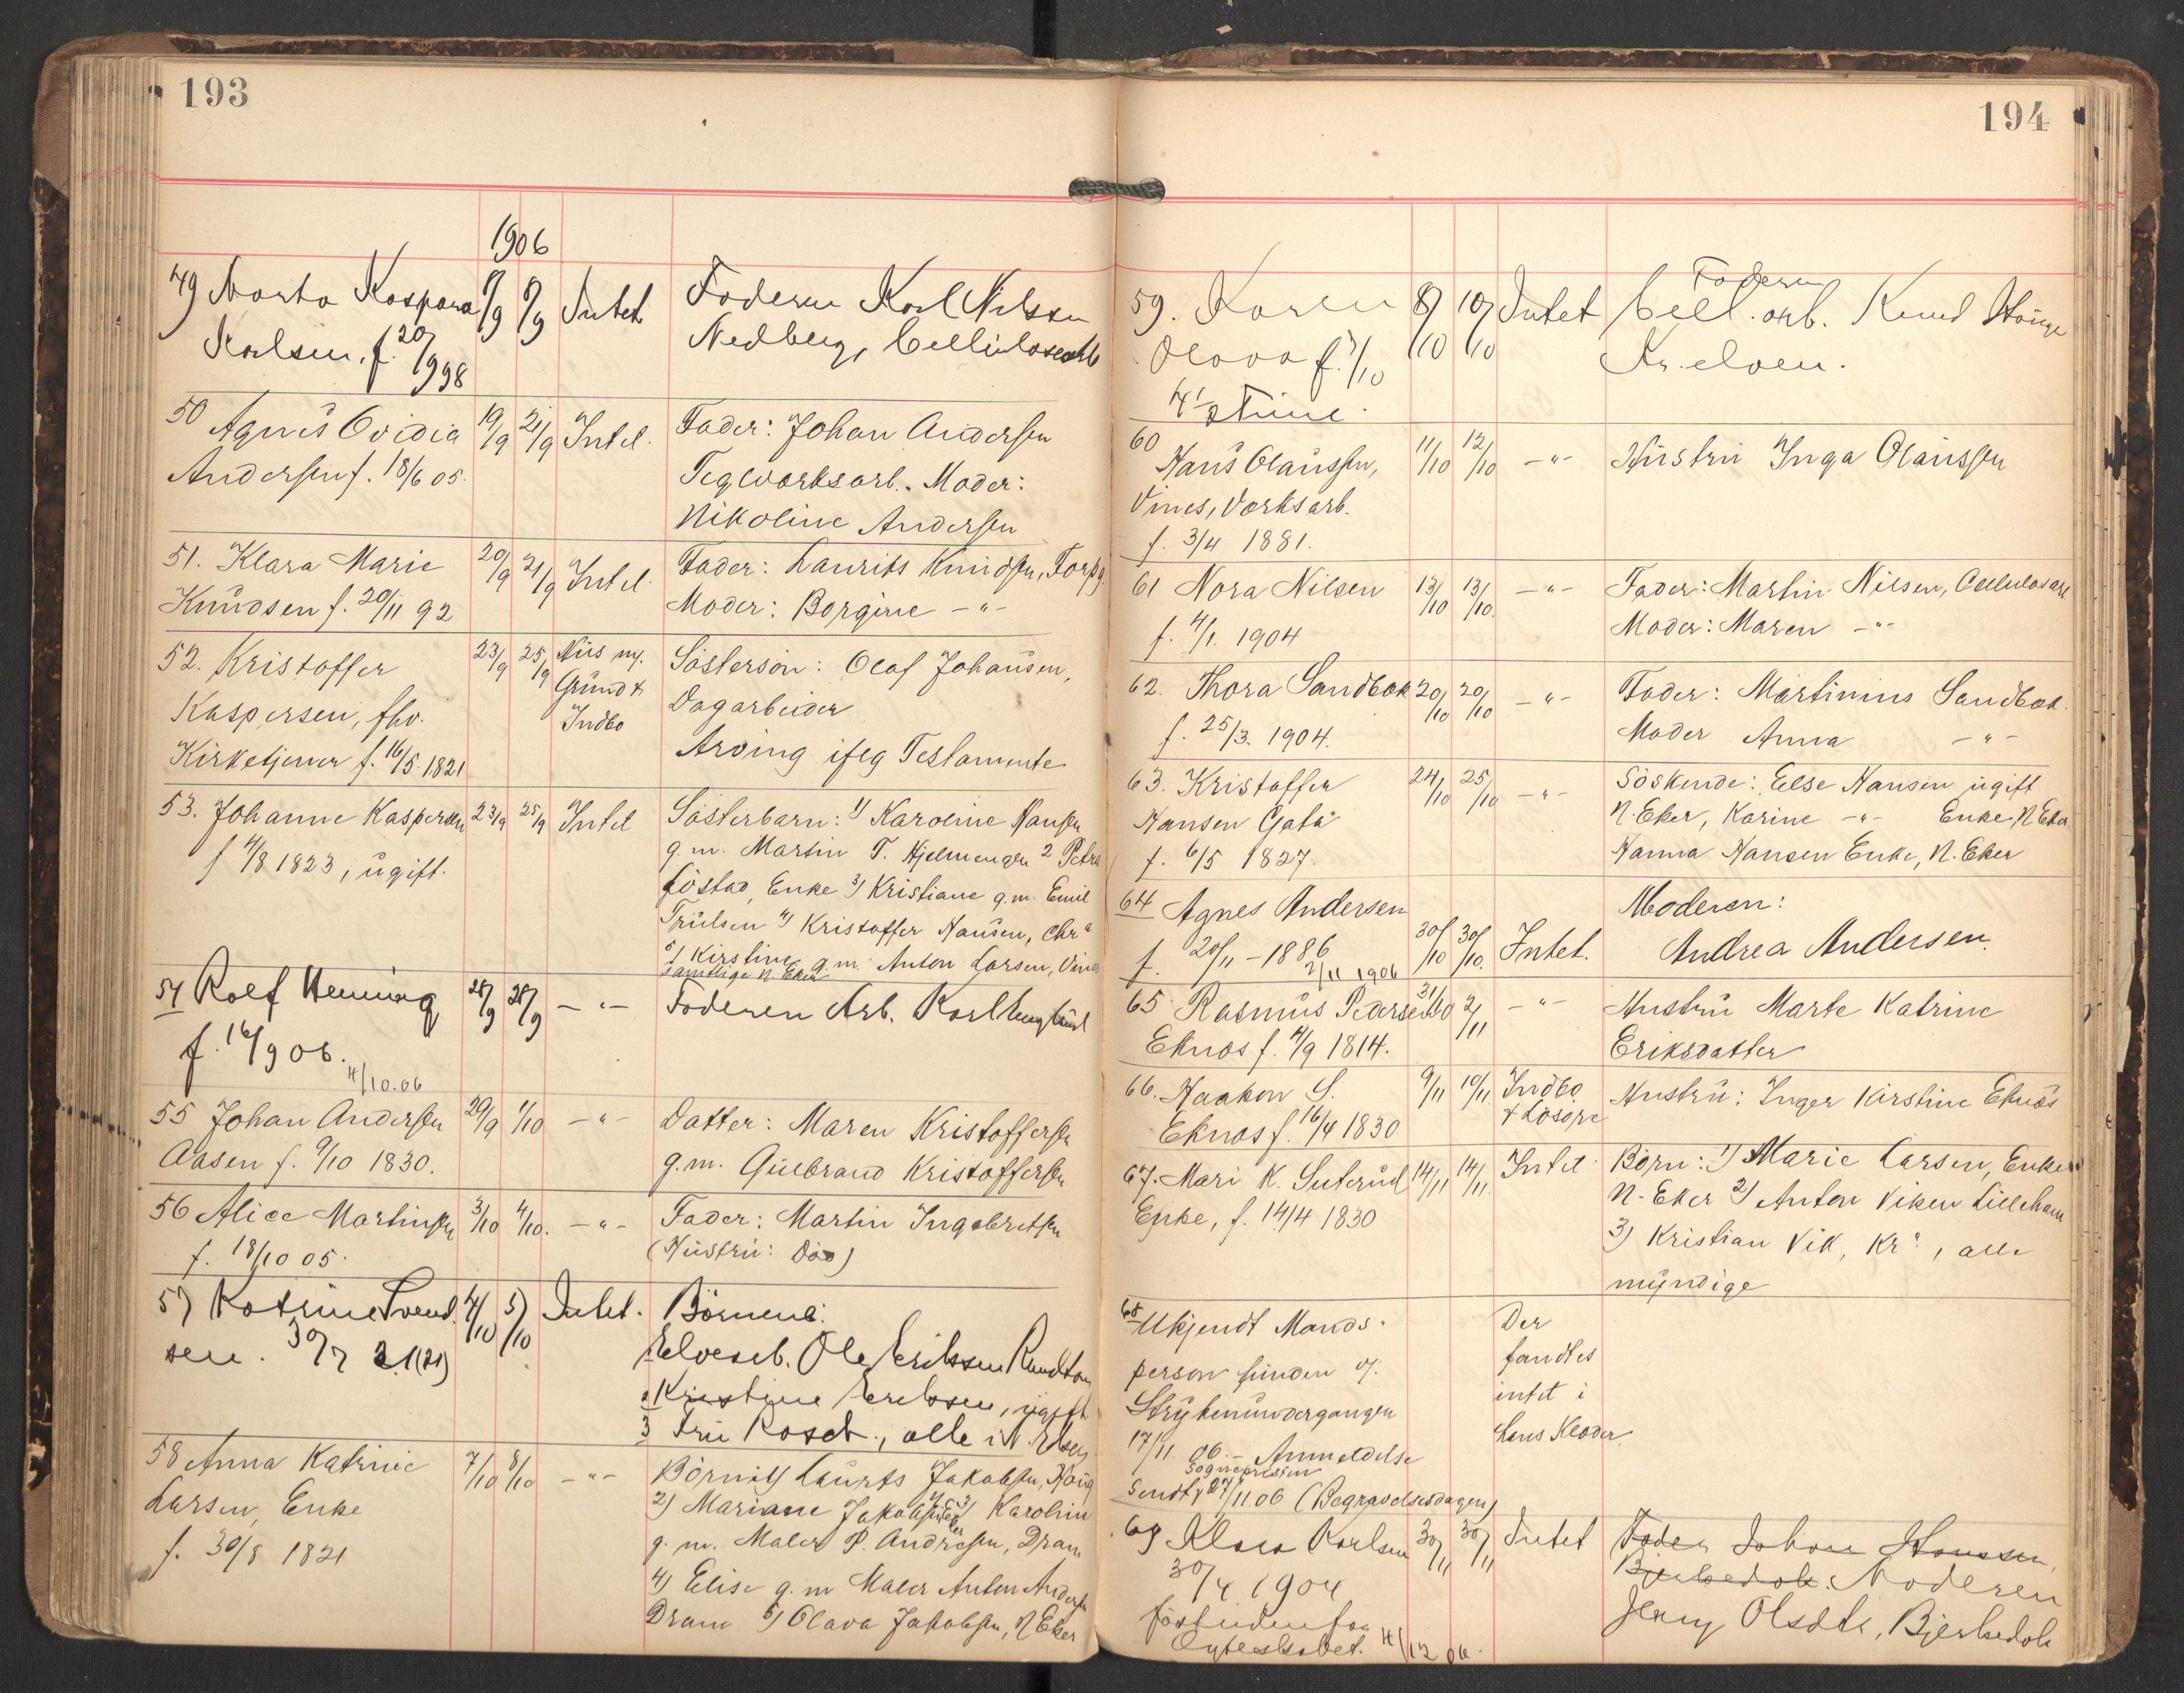 193
1906
49 Marta Kaspara 6/9 6/9 Intet Faderen Karl Nilsen
Karlsen, f. 20/1 998 Nedberg, Cellulosearb
50 Agnes Ovidia 19/9 21/9 Intet. Fader: Johan Andersen
Andersen f. 18/6 05. Teglværksarb. Moder:
Nikoline Andersen
51. Klara Marie 20/9 21/9 Intet. Fader: Laurits Knudsen,
Knudsen f. 20/11 92 Moder: Borgine -"-
52. Kristoffer 23/9 25/9 Hus m. Søstersøn: Olaf Johansen,
Kaspersen, fhv. Grund & Dagarbeider
Kirketjener f. 16/5 1821 Indbo Arving ifølg Testamente
53. Johanne Kaspersen 23/9 25/9 Intet Søsterbarn: 1) Karoline Hansen
f 4/8 1823, ugift. g.m. Martin T. Hjelmengen 2 Petra
Enke 3) Kristiane g.m. Emil
Trulsen 4) Kristoffer Hansen, Chr.a
5) Kirstine g.m. Anton Larsen, Vines
samtlige N. Eker
54 Rolf Henning 28/9 28/9 -"- Faderen Arb. Karl
f. 16/9 06.
4/10.06
55 Johan Andersen 29/9 1/10 -"- Datter: Maren Kristoffersen
Aasen f. 9/10 1830. g.m. Gulbrand Kristoffersen
56 Alice Martinsen 3/10 4/10. -"- Fader: Martin Ingebretsen
f. 18/10 05. (Hustru: Død)
57 Katrine Svend- 4/10 5/10 Intet. Børnene:
sen. 30/7 21 (21) Ole Eriksen
2 Kristine Eriksen, ugift
3 Fru Rosch., alle i N. Eker
58 Anna Katrine 7/10 8/10 -"- Børn: 1) Laurts Jakobsen, Haug
Larsen, Enke 2) Mariane Jakobsen 3) Karoline
f. 30/8 1821 g.m. Maler P. Andresen, Dram
4) Elise g.m Maler Anton Andersen
Dram 5) Olava Jakobsen, N Eker
194
59. Karen 8/10 10/10 Intet Faderen
Cell. arb. Knud Hauge
Olava f. 1/10 Kr.elven.
4' Stine.
60
Hans Olaussen, 11/10 12/10 -"- Hustru Inga Olaussen
Vines, Værksarb.
f. 3/4 1881.
61 Nora Nilsen 13/10 13/10. -"- Fader: Martin Nilsen, Cellulosearb
f. 4/1. 1904 Moder: Maren -"-
62. Thora Sandbæk 20/10 20/10 -"- Fader: Martinius Sandbæk.
f. 25/3. 1904. Moder Anna -"-
63. Kristoffer 24/10 25/10 -"- Søskende: Else Hansen ugift
Hansen Gata N. Eker, Karine -"- Enke, N Eker
f. 6/5 1827. Hanna Hansen Enke, N. Eker
64 Agnes Andersen Moderen:
f. 20/11 - 1886 30/10 30/10. Intet. Andrea Andersen.
2/11 1906
65 Rasmus Pedersen 31/10 2/11 -"- Hustru Marte Katrine
Eknes f. 4/9 1814. Eriksdatter
66. Haakon S. 9/11 10/11 Indbo Hustru: Inger Kirstine Eknes
Eknes f. 16/4 1830 & Løsøre
67. Mari K. Suterud 14/11 14/11. Intet Børn: 1) Marie Larsen, Enke
Enke, f. 14/4 1830 N. Eker 2) Anton Viken Lilleham
3) Kristian Vik, Kr.a, alle
myndige
68 Ukjendt Mands- Der
person funden v. fandtes
Strykenundergangen intet i
17/11. 06. - Anmeldelse hans Klæder.
Sognepresten
sendt 27/11 06 (Begravelsesdagen)
69 Klara Karlsen 30/11 30/11 Intet Fader Johan Hanssen,
30/4 1904 Bjerkedok. Moderen
Jenny Olsdtr, Bjerkedok
4/12 06.